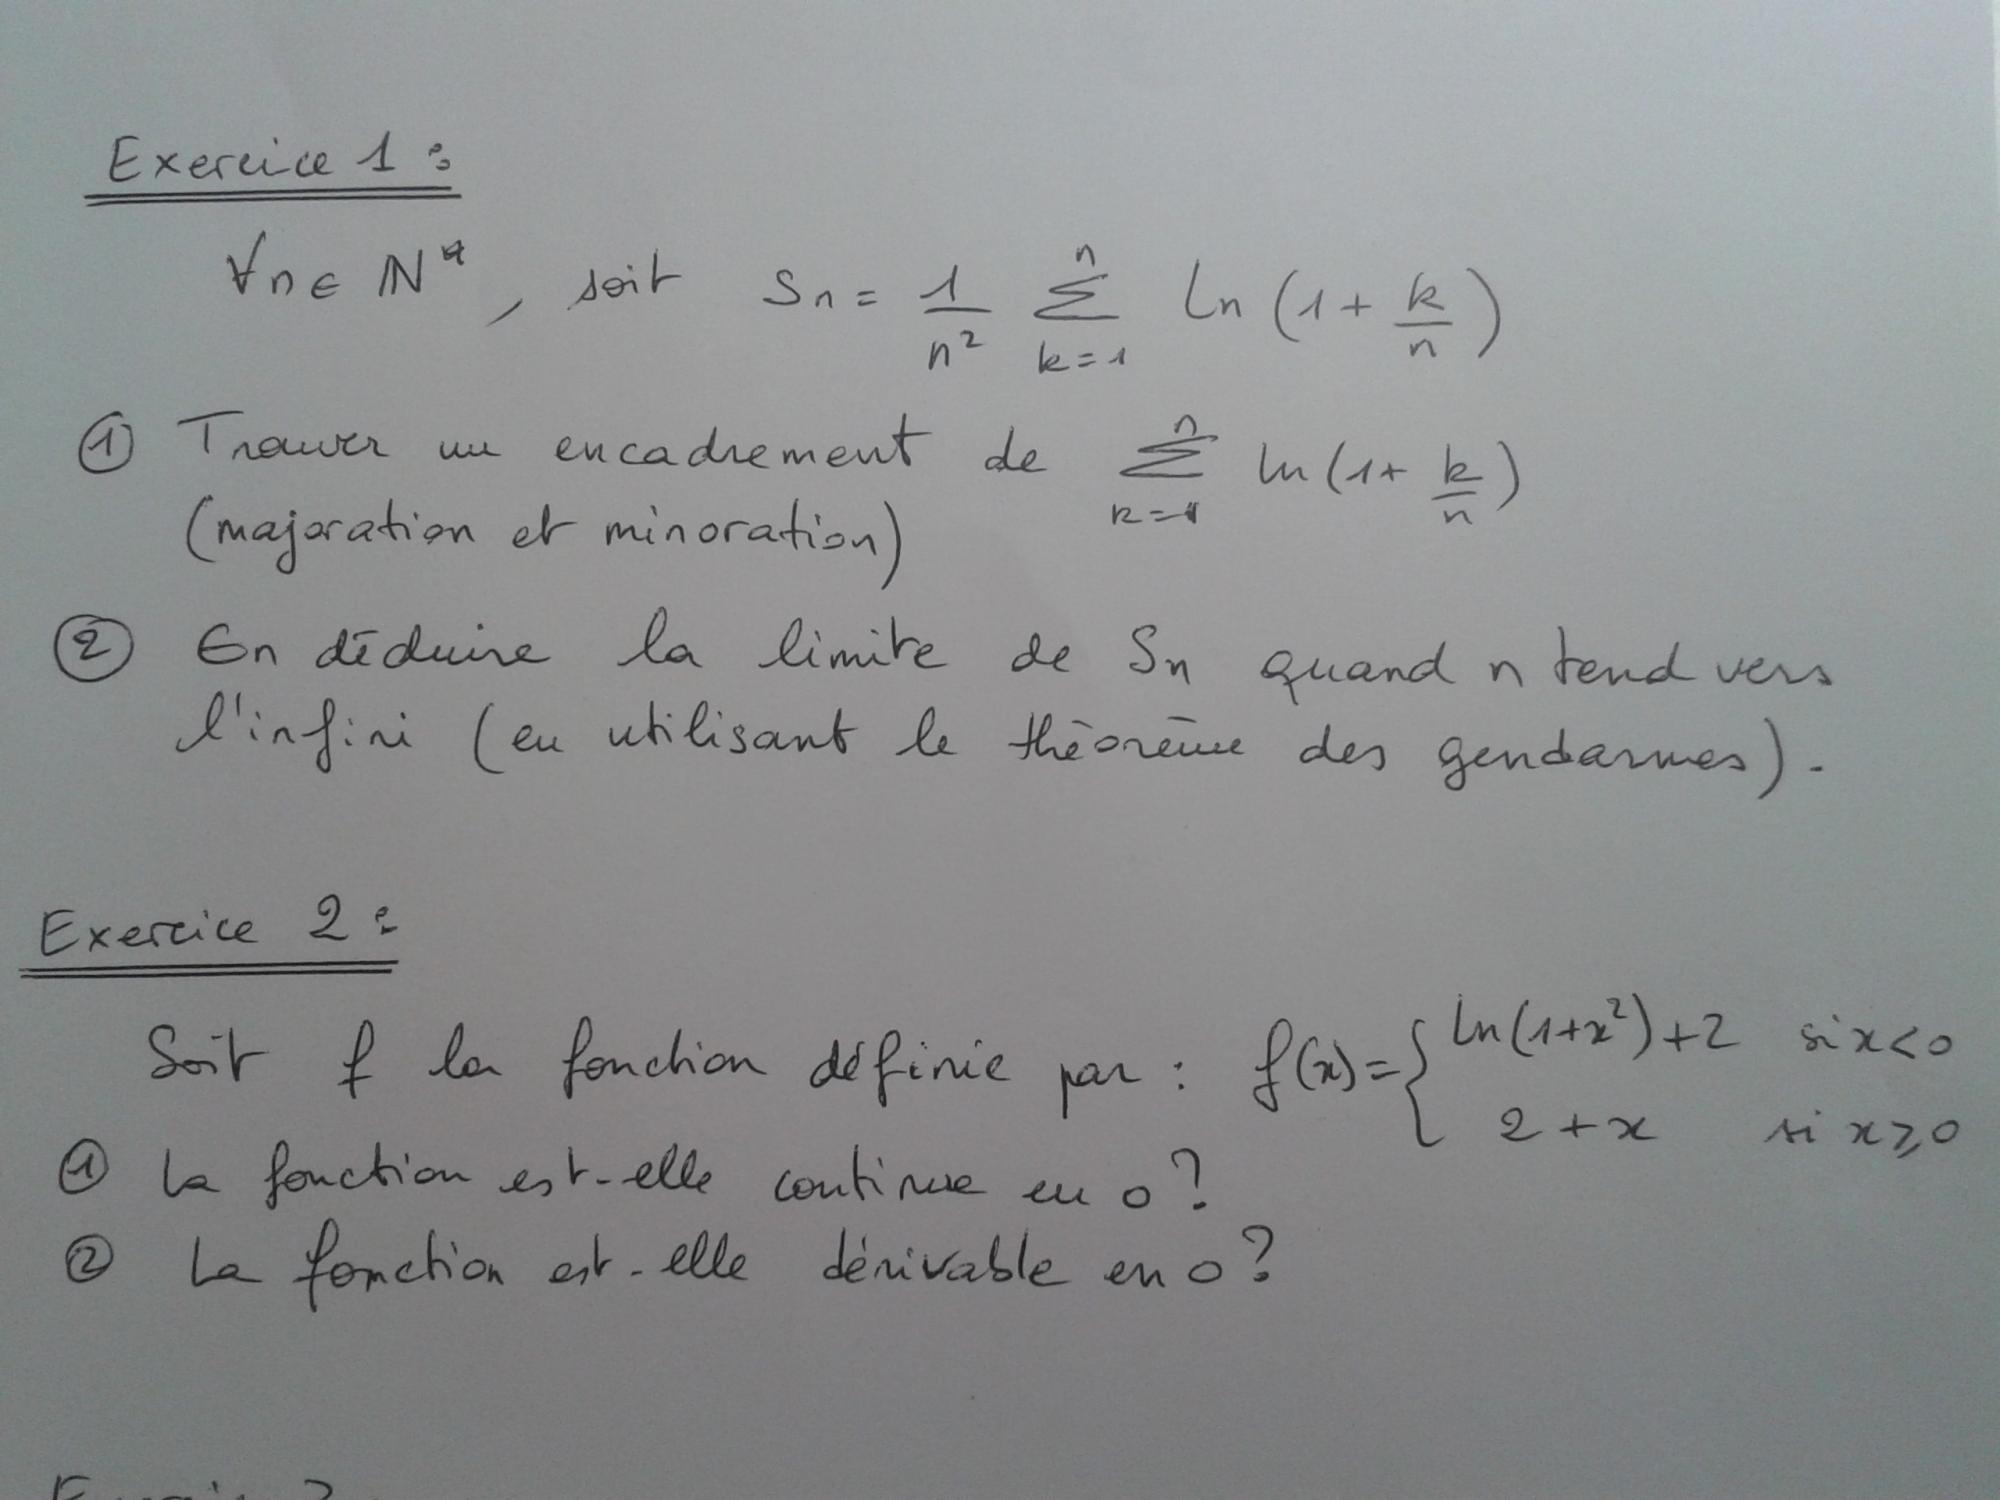 Exercice 1 :
∀n ∈ ℕ*, soit Sn = 1/n² ∑_{k=1}^{n} ln(1 + k/n)
① Trouver un encadrement de ∑_{k=1}^{n} ln(1 + k/n)
(majoration et minoration)
② En déduire la limite de Sn quand n tend vers
l'infini (en utilisant le théorème des gendarmes).
Exercice 2 :
Soit f la fonction définie par : f(x) = { ln(1+x²)+2 si x<0
2 + x si x ⩾ 0
① La fonction est-elle continue en 0 ?
② La fonction est-elle dérivable en 0 ?